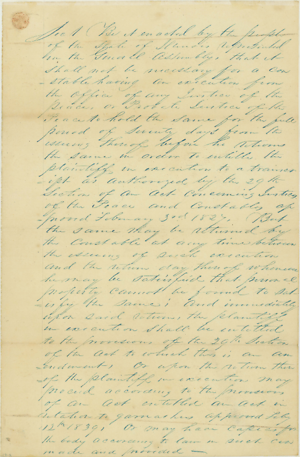 Sec 1 Be it enacted by the people
of the State of Illinois represented
in the General Assembly, that it
shall not be necessary for a con
stable having an execution from
the office of any Justice of the
peace, or Probate Justice of the
Peace to hold the same for the full
period of Seventy days from the
issuing thereof before he returns
the same in order to entitle the
plaintiff in execution to a
as authorized by the 29th
Section of an act concerning Justices
of the Peace and Constables ap
proved February 3rd 1827. But
the same may be returned by
the Constable at any time between
the issuing of such execution
and the return day thereof whenever
he may be satisfied that personal
property cannot be found to sat
isfy the same; and immediately
upon said return the plaintiff
in execution shall be entitled
to the provisions of the 29th Section
of the act to which this is an am
endment. Or upon the return there
of the plaintiff in execution may
proceed according to the provisions
of an act entitled an act in
relation to garnishees approved
12th 1839; Or may have
the body according to law in such case
made and provided —